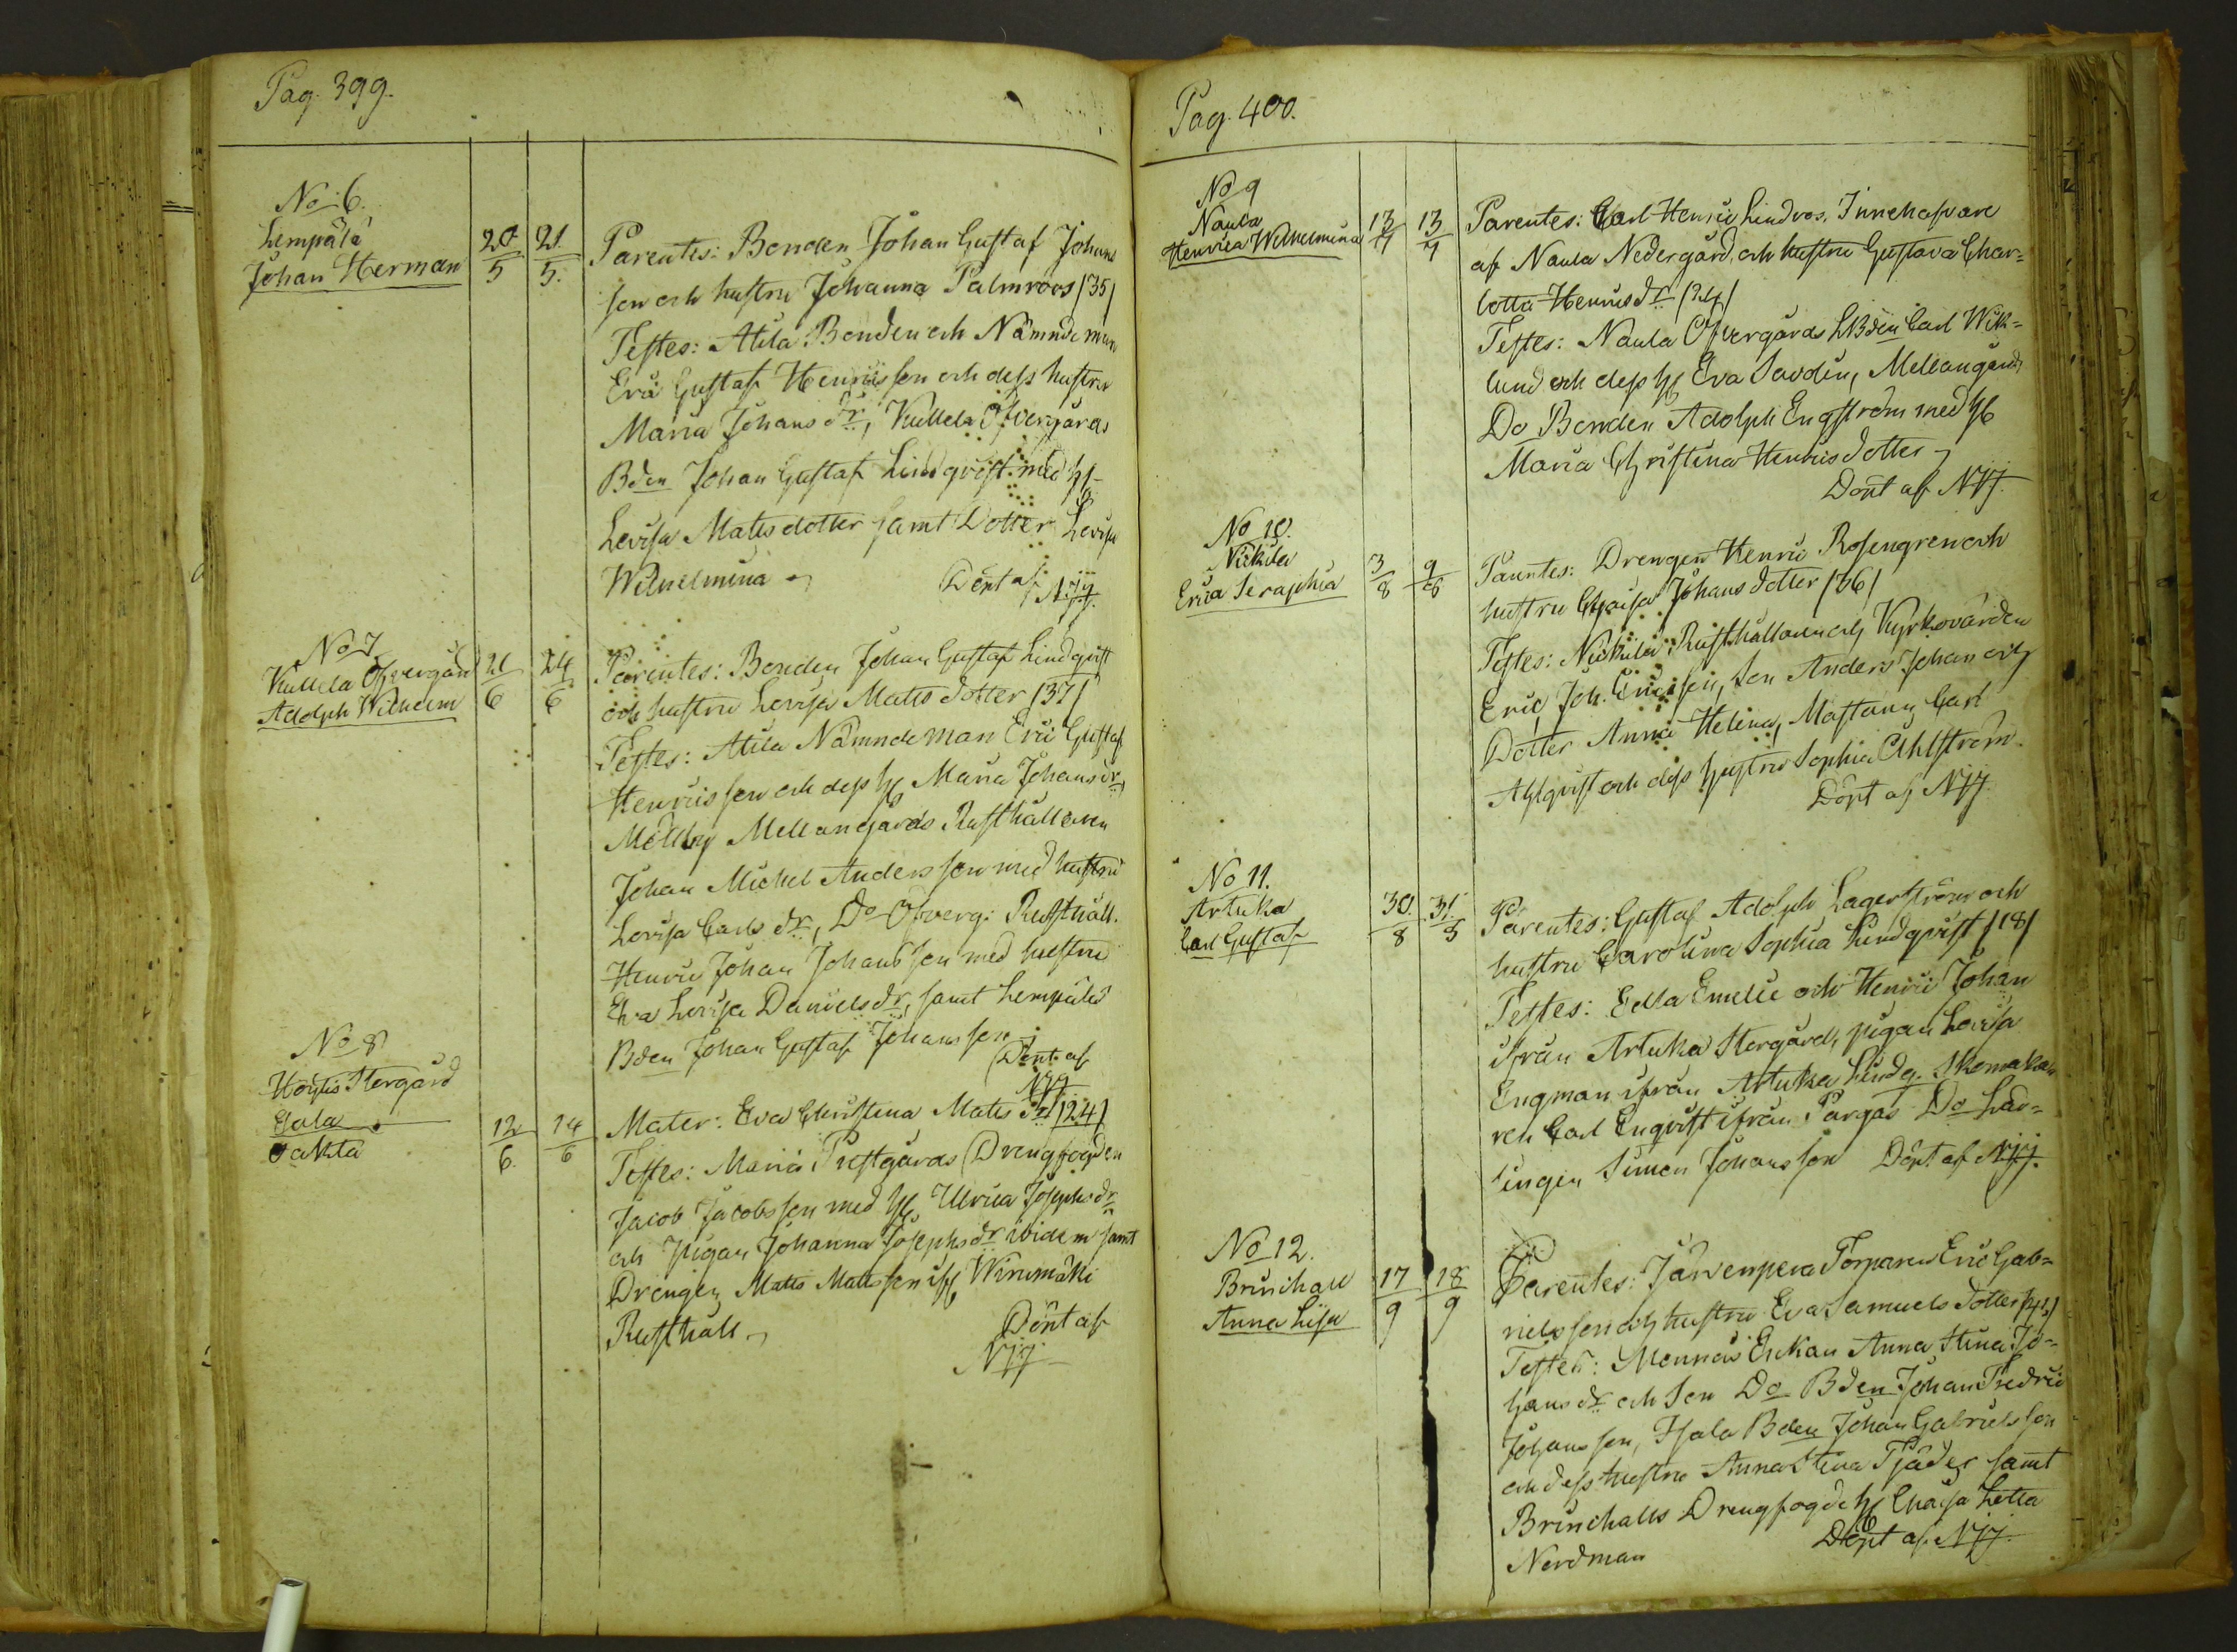 Pag. 399.
No 6.
Lempälä
Johan Herman
20/5 21/5.
Parentes: Bonden Johan Gustaf Johans
son och hustru Johanna Palmroos /35/
Testes: Atila Bonden och Nämndeman
Eric Gustaf Henricsson och dess hustru
Maria Johans dr, Kullela Öfvergårds
Bden Johan Gustaf Lindqvist med H:
Lovisa Matsdotter samt Dotter Lovisa
Wilhelmina
Döpt af NJJ.
No 7
Kullela Öfvergård
Adolph Wilhelm
21/6 24/6
Parentes: Bonden Johan Gustaf Lindqvist
och hustru Lovisa Matts dotter /37/
Testes: Atila Nämndeman Eric Gustaf
Henricsson och dess H: Maria Johans dr,
Mellangårds Rusthållaren
Johan Michel Andersson med hustru
Lovisa Carls dr, Do Öfverg: Rusthåll.
Henric Johan Johansson med hustru
Eva Lovisa Daniels dr, samt Lempälä
Bden Johan Gustaf Johansson
Döpt af
NJJ
No 8
Storgård
Oäkta
12/6. 14/6
Mater: Eva Christina Matts dr /24/
Testes: Maria Prestgårds Drengfogden
Jacob Jacobsson med H: Ulrica Josephs dr
och Pigan Johanna Josephs dr ibidem samt
Drengen Matts Mattsson Wirumäki
Rusthåll
Döpt af
NJJ
Pag. 400.
No 9
Naula
Henrica Wilhelmina
13/7 13/7
Parentes: Carl Henric Lindroos, Innehafvare
af Naula Nedergård och hustru Gustava Char=
lotta Henrics dr /24/
Testes: Naula Öfvergårds LBden Carl Wik=
lund och dess H: Eva Savdin, Mellangårds
Do Bonden Adolph Engström med H:
Maria Christina Henricsdotter
Döpt af NJJ.
No 10.
Nickula
Erica Seraphia
3/8 9/8
Parentes: Drengen Henric Rosengren och
hustru Caisa Johans dotter /36/
Testes: Nickula Rusthållaren och Kyrkovärden
Eric Joh. Ericsson, Son Anders Johan och
Dotter Anna Helena, Carl
Ahlqvist och dess hustru Sophia Ahlström.
Döpt af NJJ.
No 11.
Artuka
Carl Gustaf
30./8 31./8
Parentes: Gustaf Adolph Lagerström och
hustru Carolina Sophia Lindqvist /18/
Testes: Edla Emelie och Henric Johan
ifrån Artuka Storgård, pigan Lovisa
Engman ifrån Artuka Lindg. Skomaka
ren Carl Enqvist ifrån Pargas Do Lär=
lingen Simon Johansson Döpt af NJJ.
No 12.
Brinchall
Anna Lisa
17/9 18/9
Parentes: Järvenpera Torparen Eric Gab=
rielsson och hustru Eva Samuels dotter /42/
Testes: Monnäs Enkan Anna Stina Jo=
hans dr och Son Do Bden Johan Fredric
Johansson, Isala Bden Johan Gabrielsson
och dess hustru Anna Stina Tjäder samt
Brinchalls Drengfogde H: Caisa Lotta
Nordman
Döpt af NJJ.